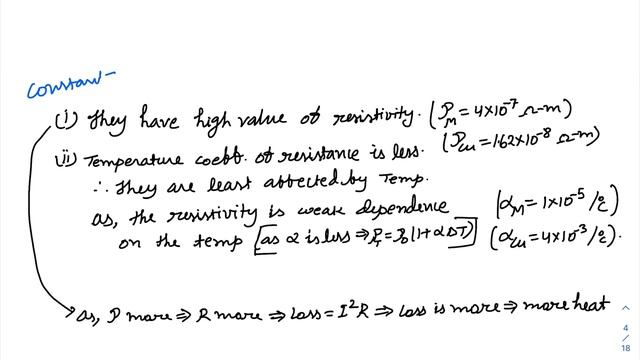 Constan-
(i) They have high value of resistivity. (ρ_M = 4×10⁻⁷ Ω-m)
(ρ_cu = 1.62×10⁻⁸ Ω-m)
(ii) Temperature coeff. of resistance is less.
∴ They are least affected by Temp.
as, the resistivity is weak dependence
(α_M = 1×10⁻⁵ /°C)
on the temp [as α is less ⇒ ρ_t = ρ_0 (1+αΔT)] (α_cu = 4×10⁻³ /°C).
as, ρ more ⇒ R more ⇒ Loss = I²R ⇒ Loss is more ⇒ more heat
4
/
18